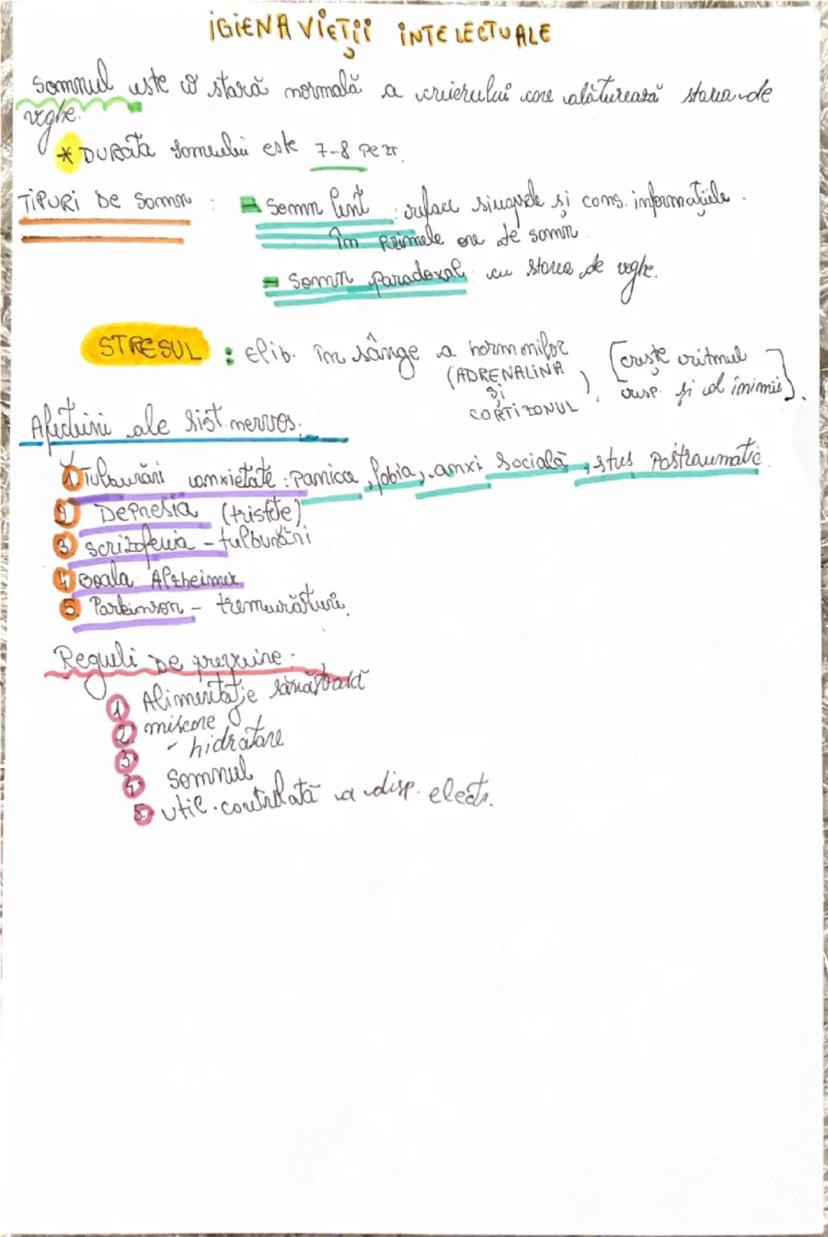 IGIENA VIEȚII INTELECTUALE
Somnul este o stară normală a creierului care alăturează starea de
veghe.
* DURata somnului este 7-8 pe zi.
TIPURI De Somn : - Somn lent : reface sinapsele și cons. informațiile.
în primele ore de somn.
- Somn paradoxal cu starea de veghe.
STRESUL : elib. în sânge a hormonilor [crește ritmul
(ADRENALINA și CORTIZONUL), resp. și al inimii].
Afecțiuni ale sist nervos.
1 Tulburări anxietate : panica, fobia, anxi Socială, stres Postraumatic.
2 Depresia (tristețe)
3. scrizofenia - tulburări
4 Boala Alzheimer
5. Parkinson - tremurături.
Reguli De prevenire.
1 Alimentație sănătoasă
2. miscare
3. - hidratare
4. Somnul
5. util. controlată a disp. electr.